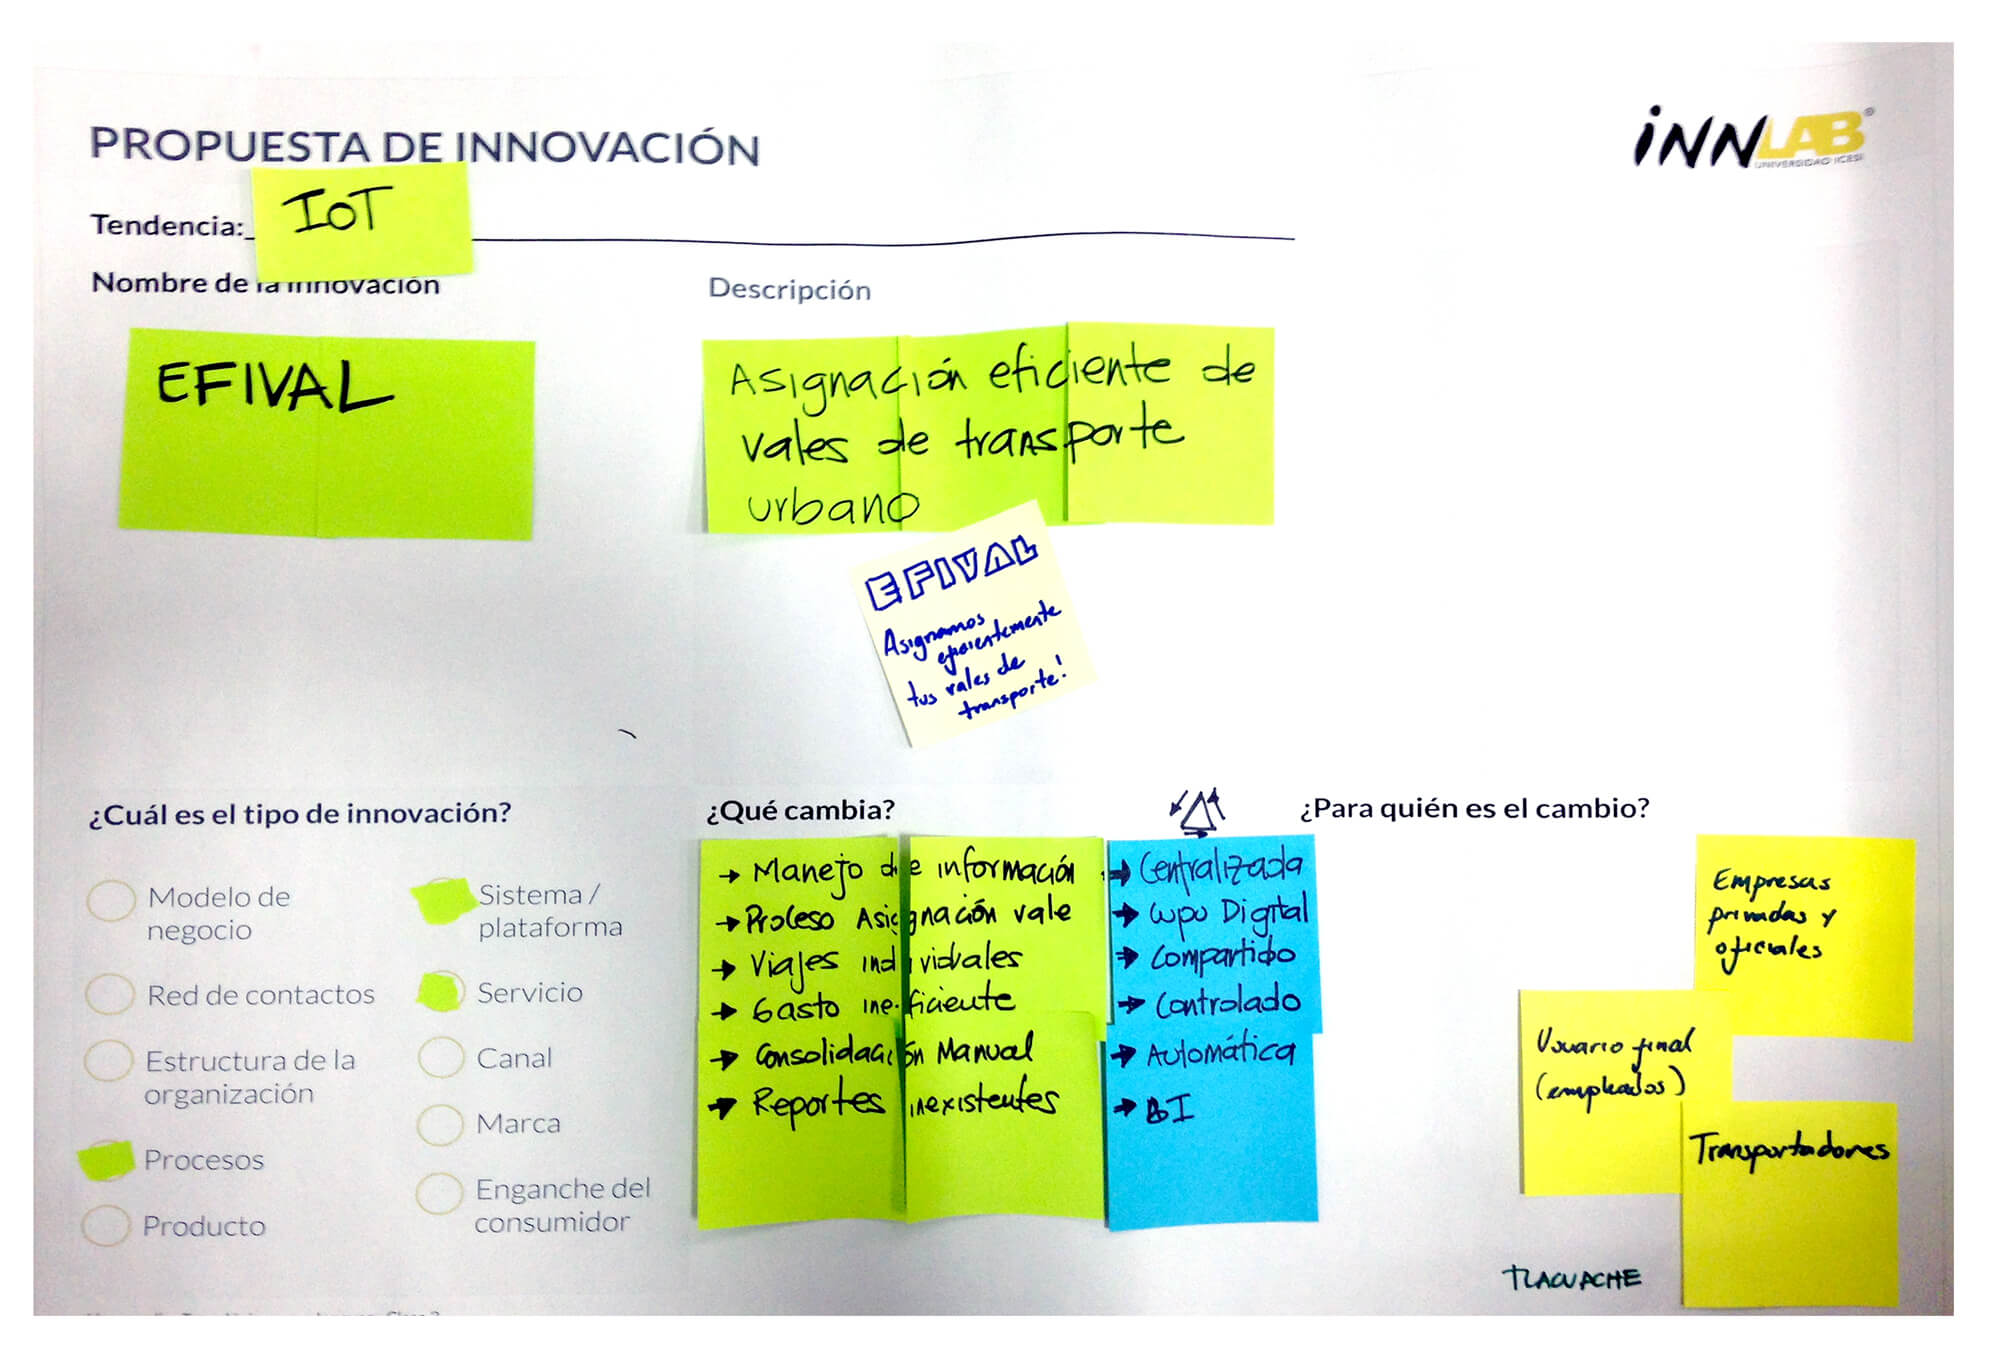 PROPUESTA DE INNOVACIÓN
iNNLAB®
UNIVERSIDAD ICESI
Tendencia:
IoT
Nombre de la innovación
Descripción
EFIVAL
Asignación eficiente de
vales de transporte
urbano
EFIVAL
Asignamos
eficientemente
tus vales de
transporte!
¿Cuál es el tipo de innovación?
Modelo de
negocio
Red de contactos
Estructura de la
organización
Procesos
Producto
Sistema /
plataforma
Servicio
Canal
Marca
Enganche del
consumidor
¿Qué cambia?
→ Manejo de información
→ Proceso Asignación vale
→ Viajes individuales
→ Gasto ineficiente
→ Consolidación Manual
→ Reportes inexistentes
→ Centralizada
→ Cupo Digital
→ Compartido
→ Controlado
→ Automática
→ BI
¿Para quién es el cambio?
Empresas
privadas y
oficiales
Usuario final
(empleados)
Transportadores
TLACUACHE